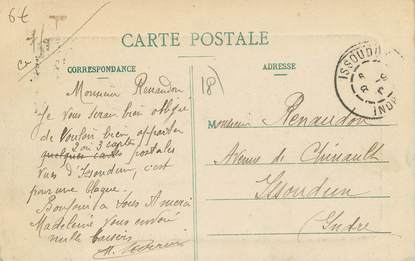 6€
CARTE POSTALE
CORRESPONDANCE
ADRESSE
18
ISSOUDUN
INDRE
Monsieur Renaudon
Je vous serai bien oblige
de vouloir bien apporter
2 ou 3 cartes
quelques cartes postales
vues d'Issoudun, c'est
pour une blague.
Bonjour à vous
Madeleine vous envoie
mille baisers
Monsieur Renaudon
Avenue de Chinault
Issoudun
Indre